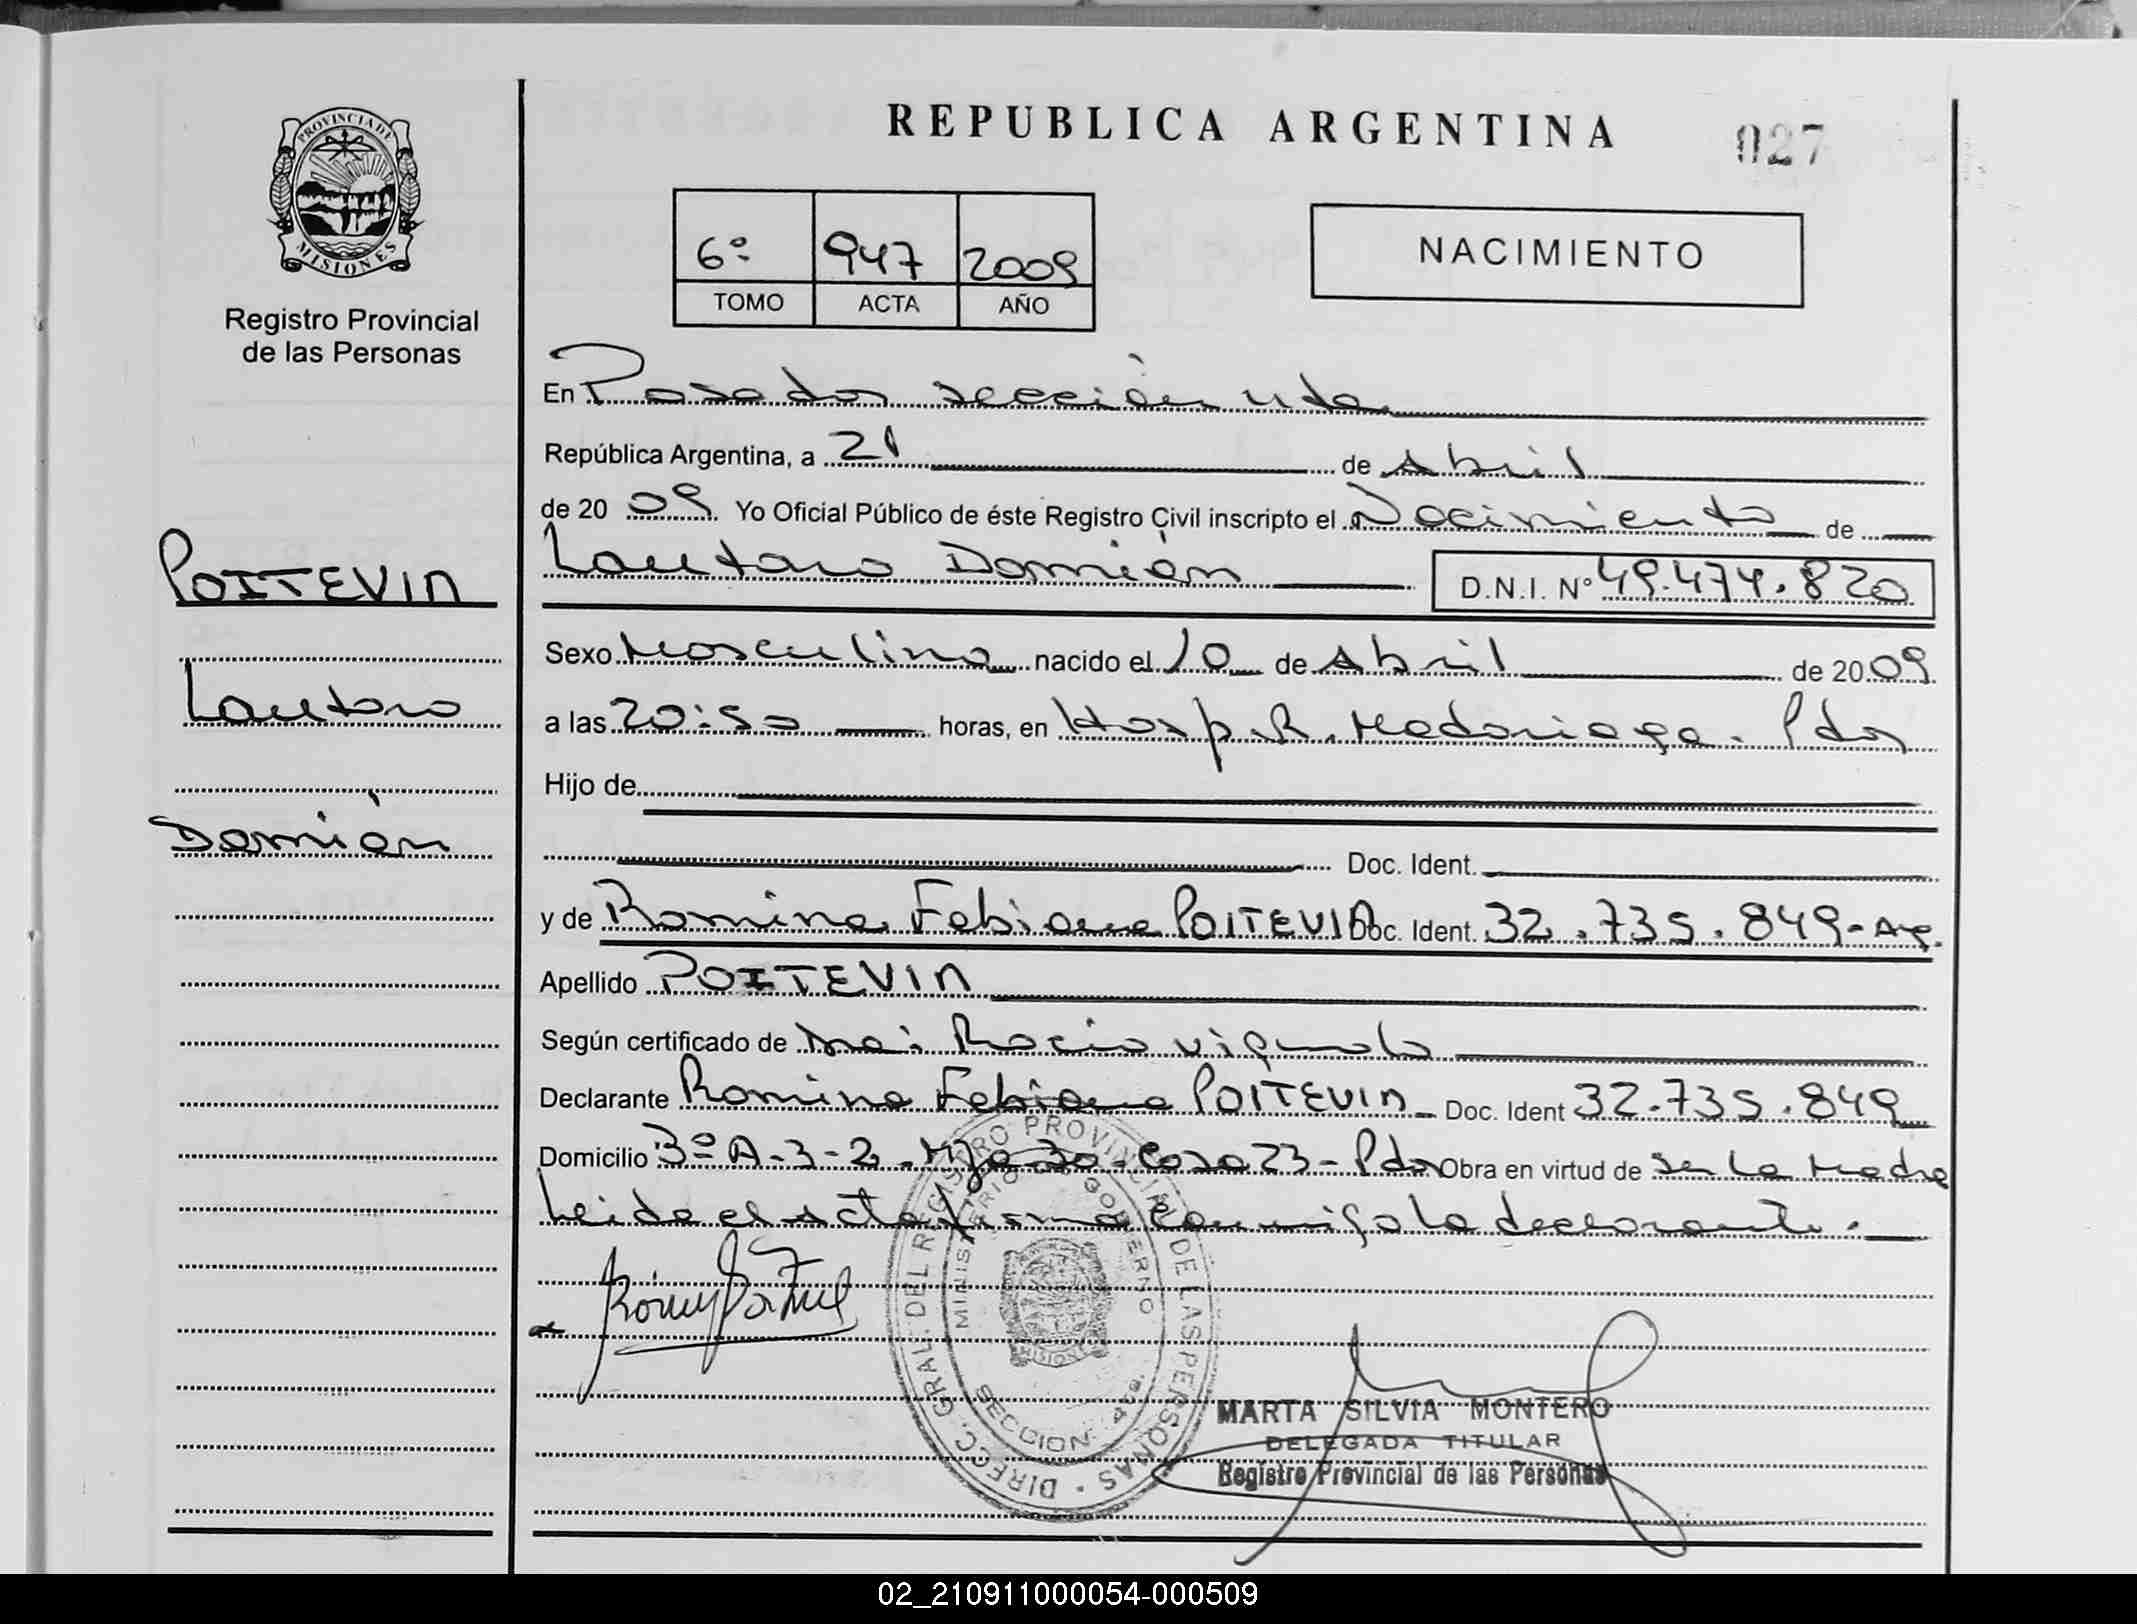 REPUBLICA ARGENTINA
027
PROVINCIA DE
MISIONES
Registro Provincial
de las Personas
6º 947 2009
TOMO ACTA AÑO
NACIMIENTO
POITEVIN
Lautaro
Damián
En Posadas sección 4ta
República Argentina, a 21 de Abril
de 20 09 Yo Oficial Público de éste Registro Civil inscripto el Nacimiento de
Lautaro Damián D.N.I. Nº 49.474.820
Sexo Masculino nacido el 10 de Abril de 20 09
a las 20:50 horas, en Hosp. R. Madariaga. Pdas
Hijo de
Doc. Ident.
y de Romina Fabiana POITEVIN Doc. Ident. 32.735.849- Arg.
Apellido POITEVIN
Según certificado de Dra: Rocio Vignola
Declarante Romina Fabiana POITEVIN Doc. Ident 32.735.849
Domicilio 3º A-3-2. Mza 30. Casa 23- Pdas Obra en virtud de ser la Madre
Leida el acta firma conmigo la declarante.
DIRECC. GRAL. DEL REGISTRO PROVINCIAL DE LAS PERSONAS
MINISTERIO GOBIERNO
SECCION 4ta.
MISIONES
MARTA SILVIA MONTERO
DELEGADA TITULAR
Registro Provincial de las Personas
02_210911000054-000509